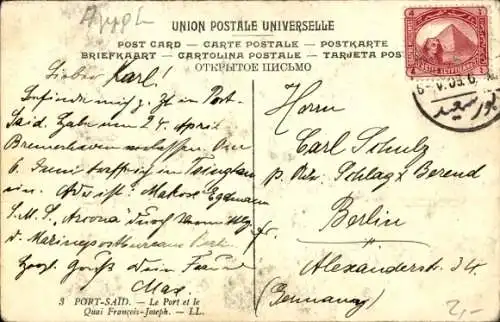 Aegypt.
UNION POSTALE UNIVERSELLE
POST CARD — CARTE POSTALE — POSTKARTE
BRIEFKAART — CARTOLINA POSTALE — TARJETA POSTAL
ОТКРЫТОЕ ПИСЬМО
Lieber Karl!
Befinde mich z. Zt in Port-
Said. Habe am 24. April
Bremerhaven verlassen. Am
6. Juni treffe ich in Tsingtau
ein. Adresse: Matrose Egdmann
S.M.S. durch
d. Marinepostbureau Berl.
Herzl. Gruß Dein Freund
Max.
Herrn
Carl Schulz
p. Adr. Schlag & Berend
Berlin
Alexanderstr. 34.
(Germany)
بورسعيد
3 PORT-SAÏD. — Le Port et le
Quai François-Joseph. — LL.
2,-